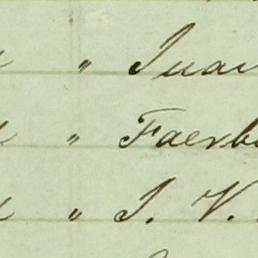 " Juan
" Faerb
" J. V.